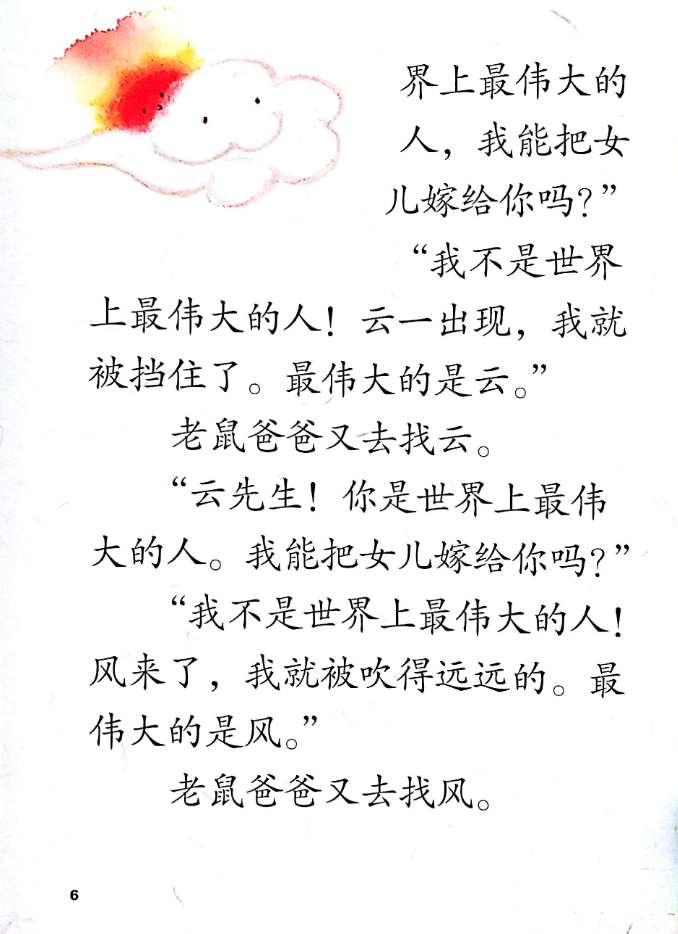 界上最伟大的
人，我能把女
儿嫁给你吗？”
“我不是世界
上最伟大的人！云一出现，我就
被挡住了。最伟大的是云。”
老鼠爸爸又去找云。
“云先生！你是世界上最伟
大的人。我能把女儿嫁给你吗？”
“我不是世界上最伟大的人！
风来了，我就被吹得远远的。最
伟大的是风。”
老鼠爸爸又去找风。
6